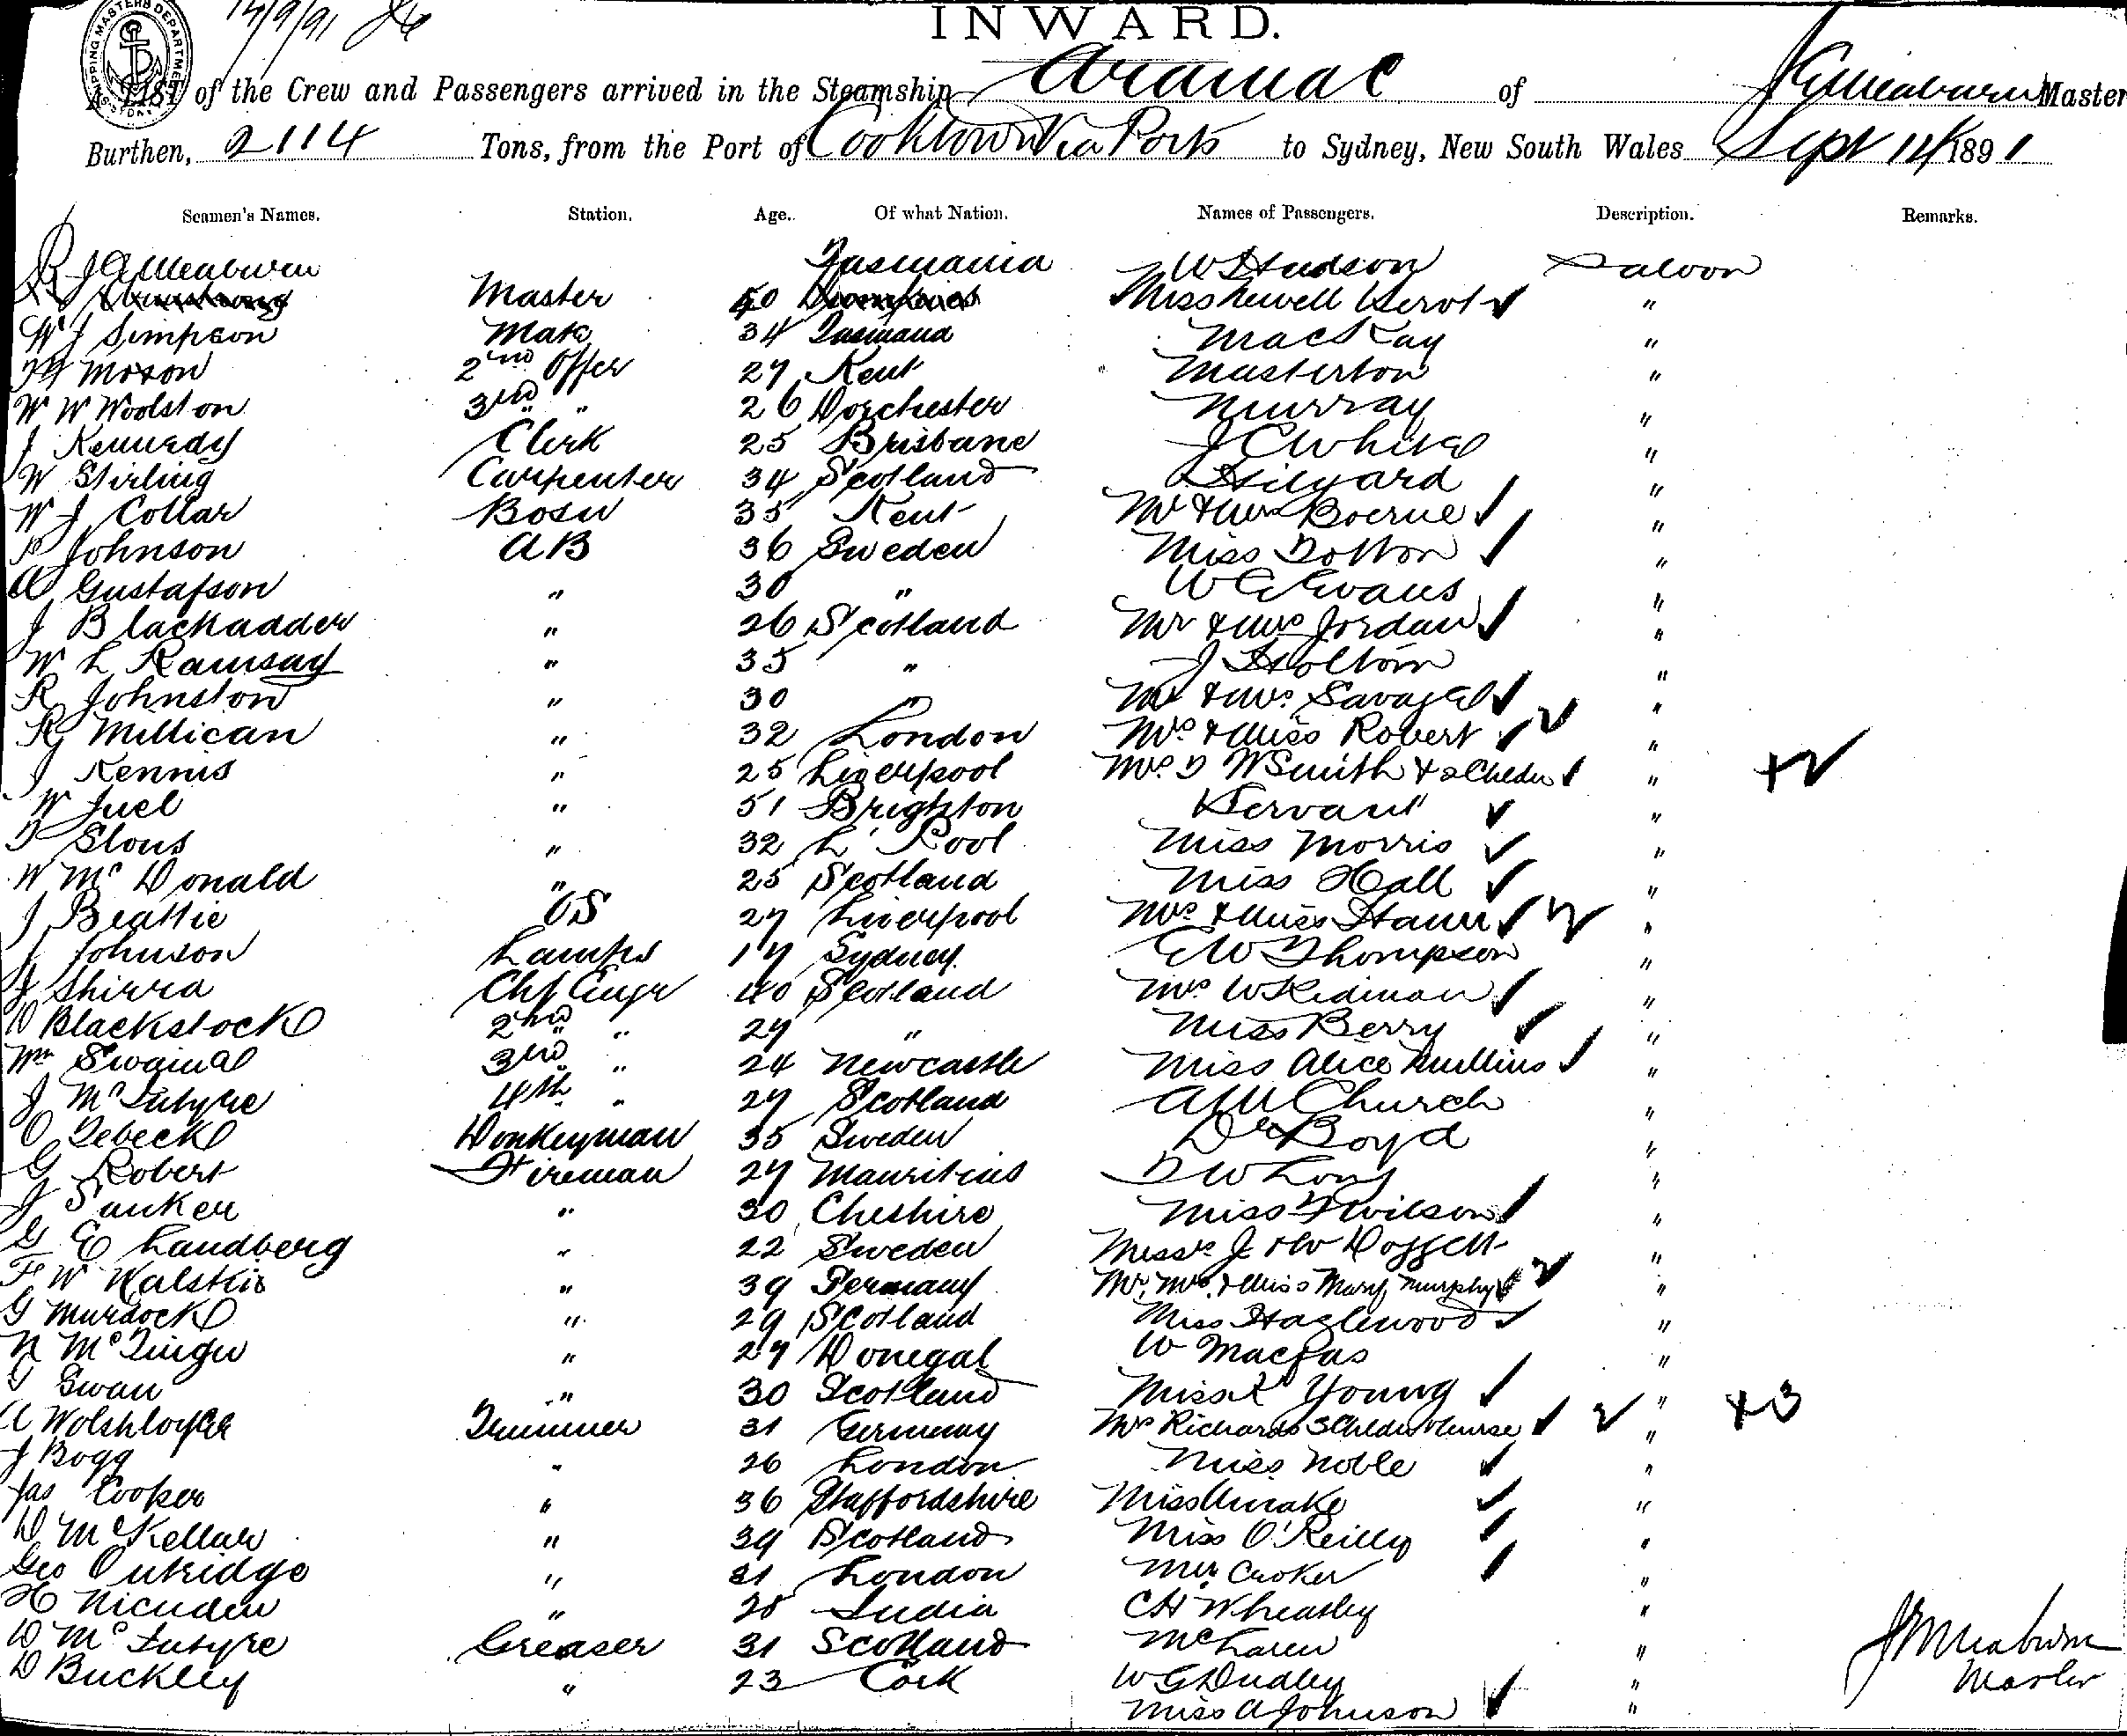 14/9/91
SHIPPING MASTERS DEPARTMENT SYDNEY
INWARD.
A LIST of the Crew and Passengers arrived in the Steamship Aramac of J G Meaburn Master
Burthen, 2114 Tons, from the Port of Cooktown Via Ports to Sydney, New South Wales Sept 14 1891
Seamen's Names. Station. Age. Of what Nation. Names of Passengers. Description. Remarks.
J G Meaburn Tasmania W Hudson Saloon
Master 50 Miss "
W J Simpson Mate 34 Tasmania MacKay "
Moxon 2nd Offer 27 Kent Masterton "
W W Woolston 3rd " 26 Dorchester Murray "
J Kennedy Clerk 25 Brisbane J C White "
W Stirling Carpenter 34 Scotland Hilyard "
W J Collar Bosn 35 Kent Mr & Mrs Boerne "
P Johnson AB 36 Sweden Miss Dotton "
A Gustafson " 30 " W G Evans "
J Blackadder " 26 Scotland Mr & Mrs Jordan "
W L Ramsay " 35 " J Holtom "
R Johnston " 30 " Mr & Mrs Savage "
R Millican " 32 London Mrs & Miss Robert "
J Kennis " 25 Liverpool Mrs D W Smith & 2 Childn " +2
W Juel " 51 Brighton Servant "
Slous " 32 L'Pool Miss Morris "
W McDonald " 25 Scotland Miss Hall "
J Beattie OS 27 Liverpool Mrs & Miss "
J Johnson Lamps 17 Sydney E W Thompson "
J Shirra Chf Engr 40 Scotland Mrs W Redman "
D Blackstock 2nd " 27 " Miss Berry "
Wm Swainal 3rd " 24 Newcastle Miss Alice Mullins "
J McIntyre 4th " 27 Scotland A M Church "
O Lebeck Donkeyman 35 Sweden Dr Boyd "
G Robert Fireman 27 Mauritius D W Long "
J Sanker " 30 Cheshire Miss F Wilson "
G E Landberg " 22 Sweden Messrs J & W Doggett "
F W Walskis " 39 Germany Mr, Mrs & Miss Mary Murphy "
G Murdock " 29 Scotland Miss Hazlewood "
N " 27 Donegal W "
G Swan " 30 Scotland Miss K Young "
A Trimmer 31 Germany Mrs Richards 3 Childn & Nurse " +3
J Bogg " 26 London Miss Noble "
Jas Cooper " 36 Staffordshire Miss "
D McKellar " 39 Scotland Miss O'Reilly "
Geo Outridge " 21 London Mrs Croker "
H " 28 India C H Wheatley "
D McIntyre Greaser 31 Scotland McLaren "
D Buckley " 23 Cork W G Dudley "
Miss A Johnson "
J G Meaburn
Master